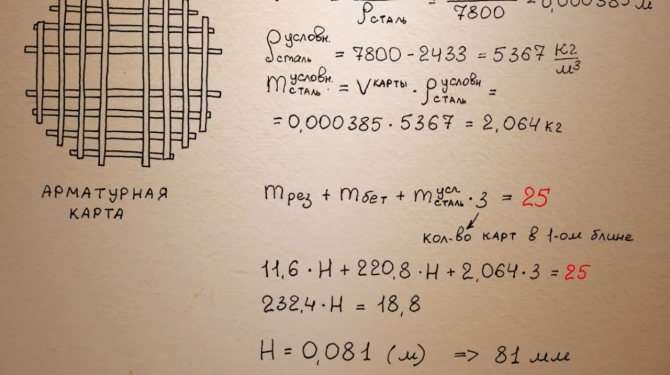 ρсталь 7800 = 0,000385 м
ρ условн. сталь = 7800 - 2433 = 5367 кг/м³
m условн. сталь. = V карты · ρ условн. сталь =
= 0,000385 · 5367 = 2,064 кг
АРМАТУРНАЯ
КАРТА
m рез + m бет + m усл. сталь · 3 = 25
кол-во карт в 1-ом блине
11,6 · H + 220,8 · H + 2,064 · 3 = 25
232,4 · H = 18,8
H = 0,081 (м) => 81 мм